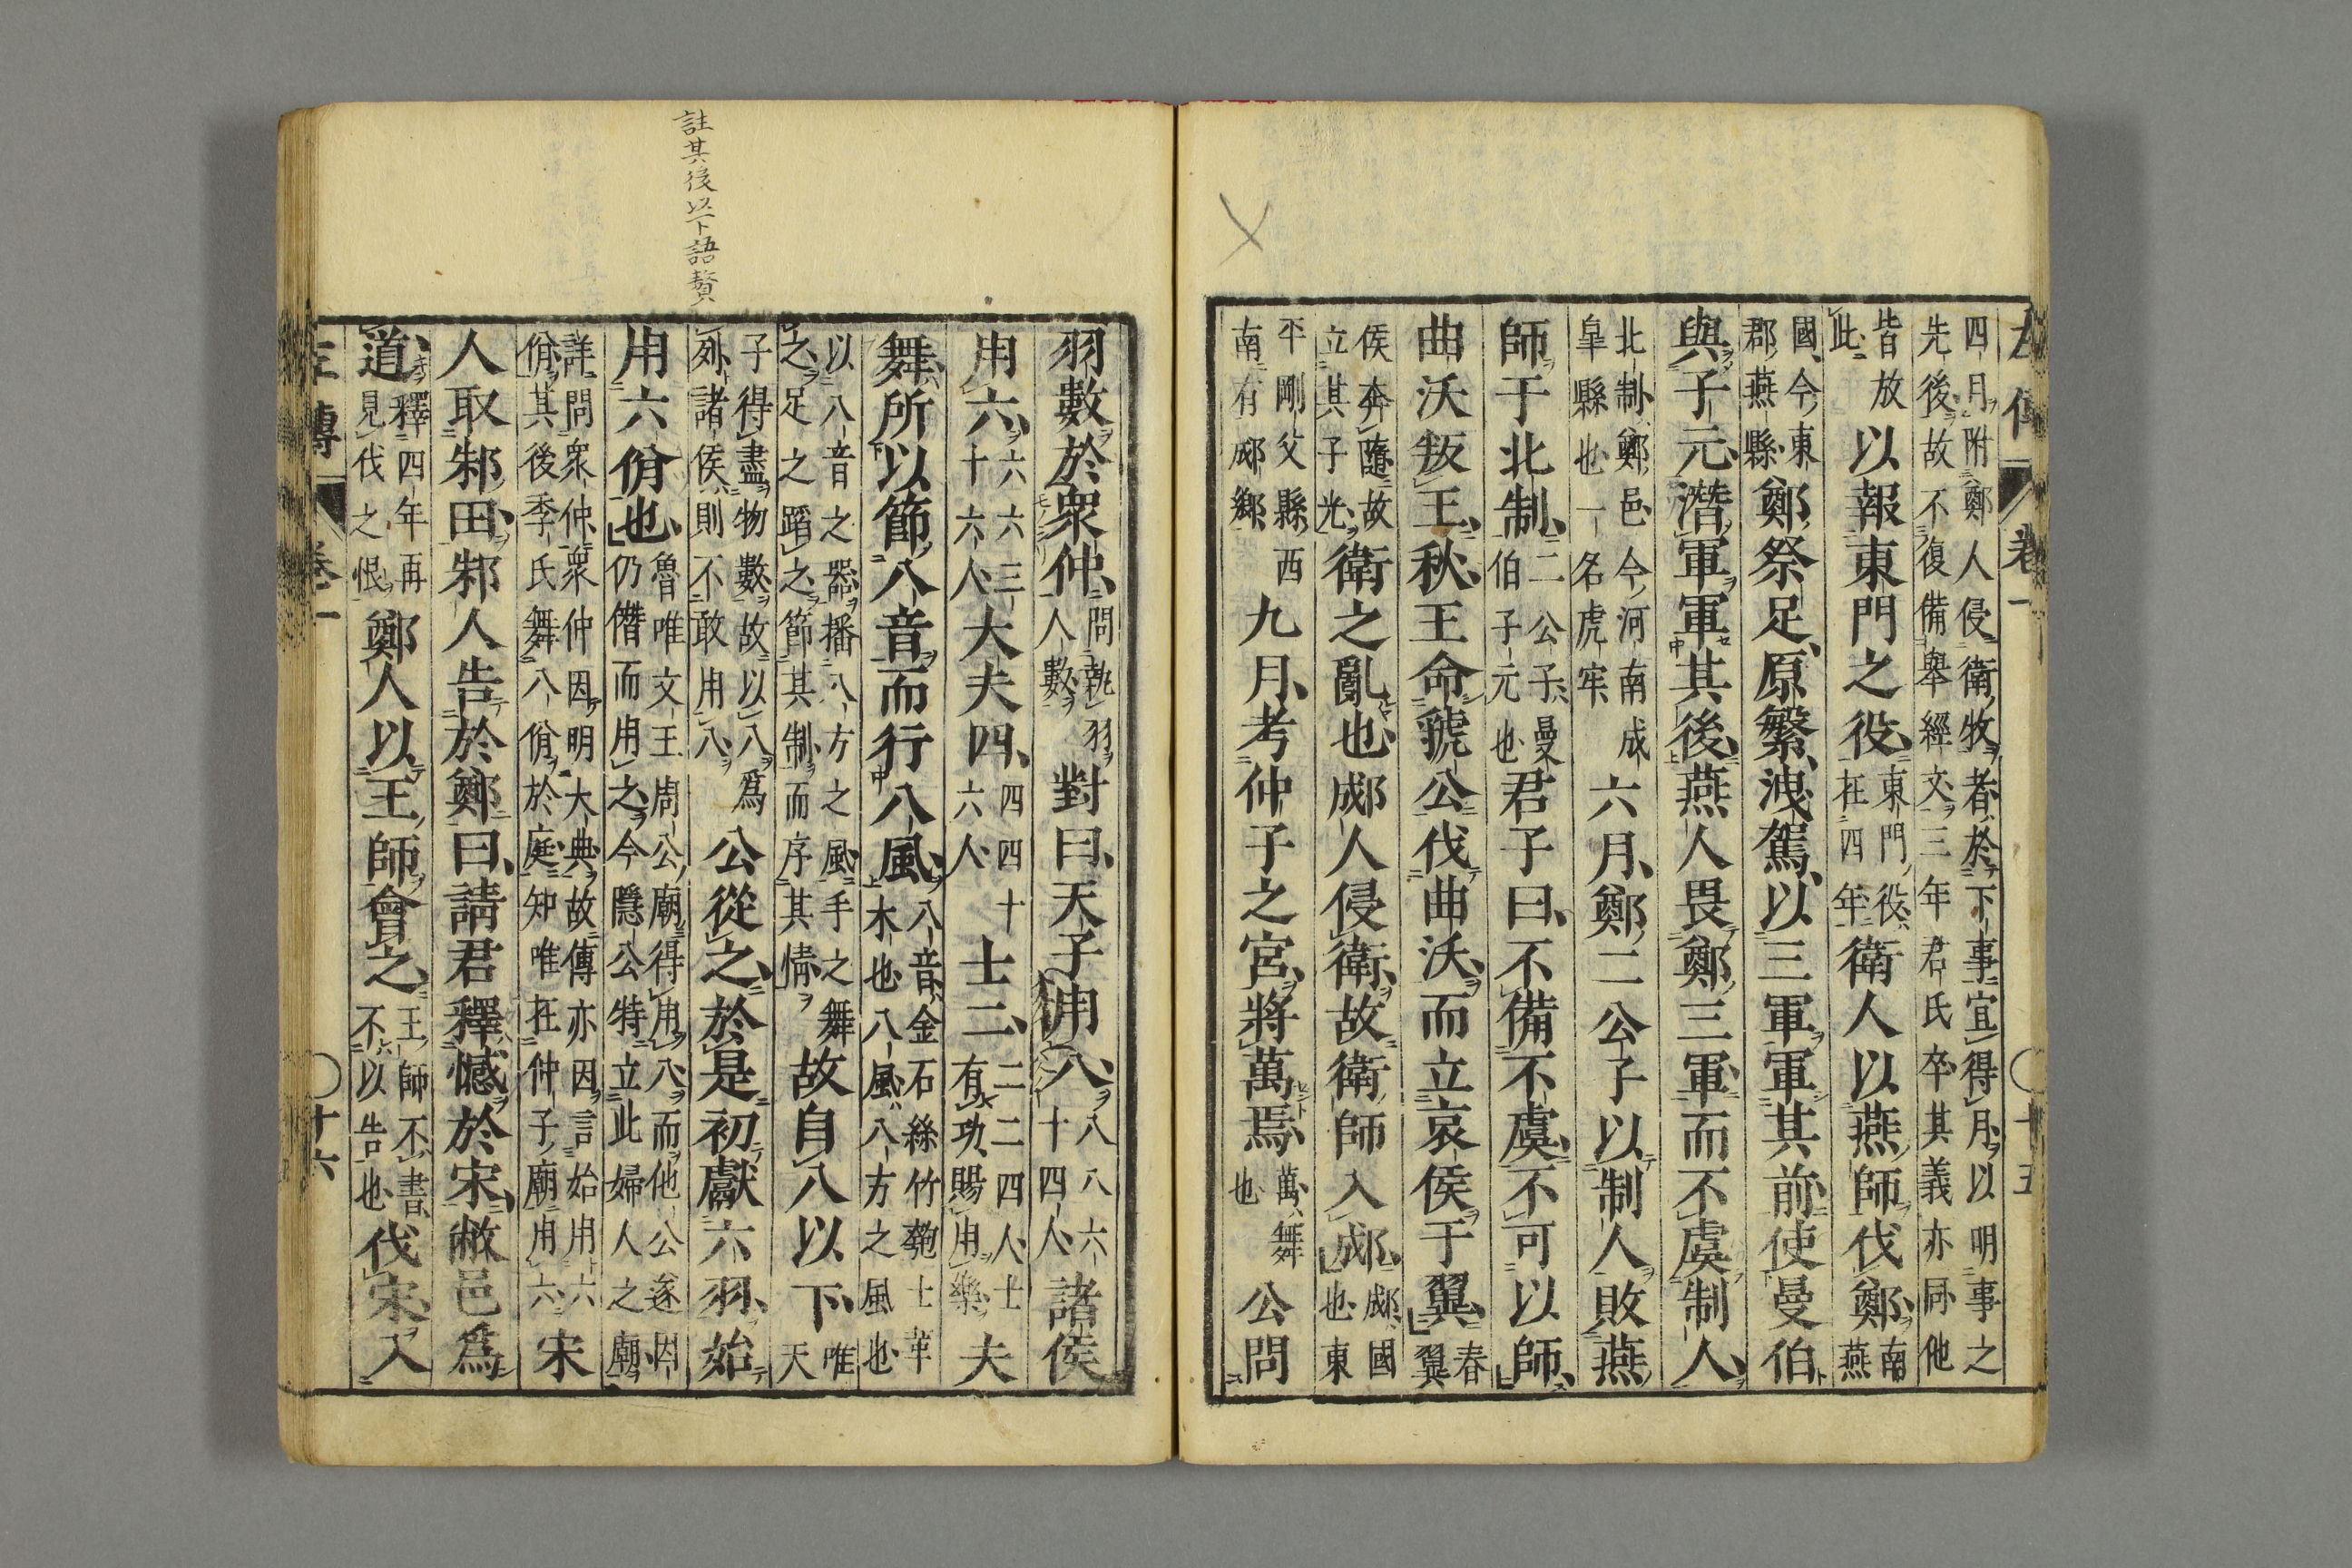 左傳 卷一 十五
四月附鄭人侵衛牧者於下事宜得月以明事之
先後故不復備舉經文三年君氏卒其義亦同他
皆放此以報東門之役東門役在四年衛人以燕師伐鄭南燕
國今東郡燕縣鄭祭足原繁洩駕以三軍軍其前使曼伯
與子元潛軍軍其後燕人畏鄭三軍而不虞制人
北制鄭邑今河南成皐縣也一名虎牢六月鄭二公子以制人敗燕
師于北制二公子曼伯子元也君子曰不備不虞不可以師
曲沃叛王秋王命虢公伐曲沃而立哀侯于翼春翼
侯奔隨故立其子光衛之亂也郕人侵衛故衛師入郕郕國也東
平剛父縣西南有郕鄉九月考仲子之宮將萬焉萬舞也公問
註其後以下語贅
羽數於衆仲問執羽人數對曰天子用八八八六十四人諸侯
用六六六三十六人大夫四四四十六人士二二二四人士有功賜用樂夫
舞所以節八音而行八風八音金石絲竹匏土革木也八風八方之風也
以八音之器播八方之風手之舞之足之蹈之節其制而序其情故自八以下唯天
子得盡物數故以八爲列諸侯則不敢用八公從之於是初獻六羽始
用六佾也魯唯文王周公廟得用八而他公遂因仍僭而用之今隱公特立此婦人之廟
詳問衆仲衆仲因明大典故傳亦因言始用六佾其後季氏舞八佾於庭知唯在仲子廟用六宋
人取邾田邾人告於鄭曰請君釋憾於宋敝邑爲
道釋四年再見伐之恨鄭人以王師會之王師不書不以告也伐宋入
左傳 卷一 十六